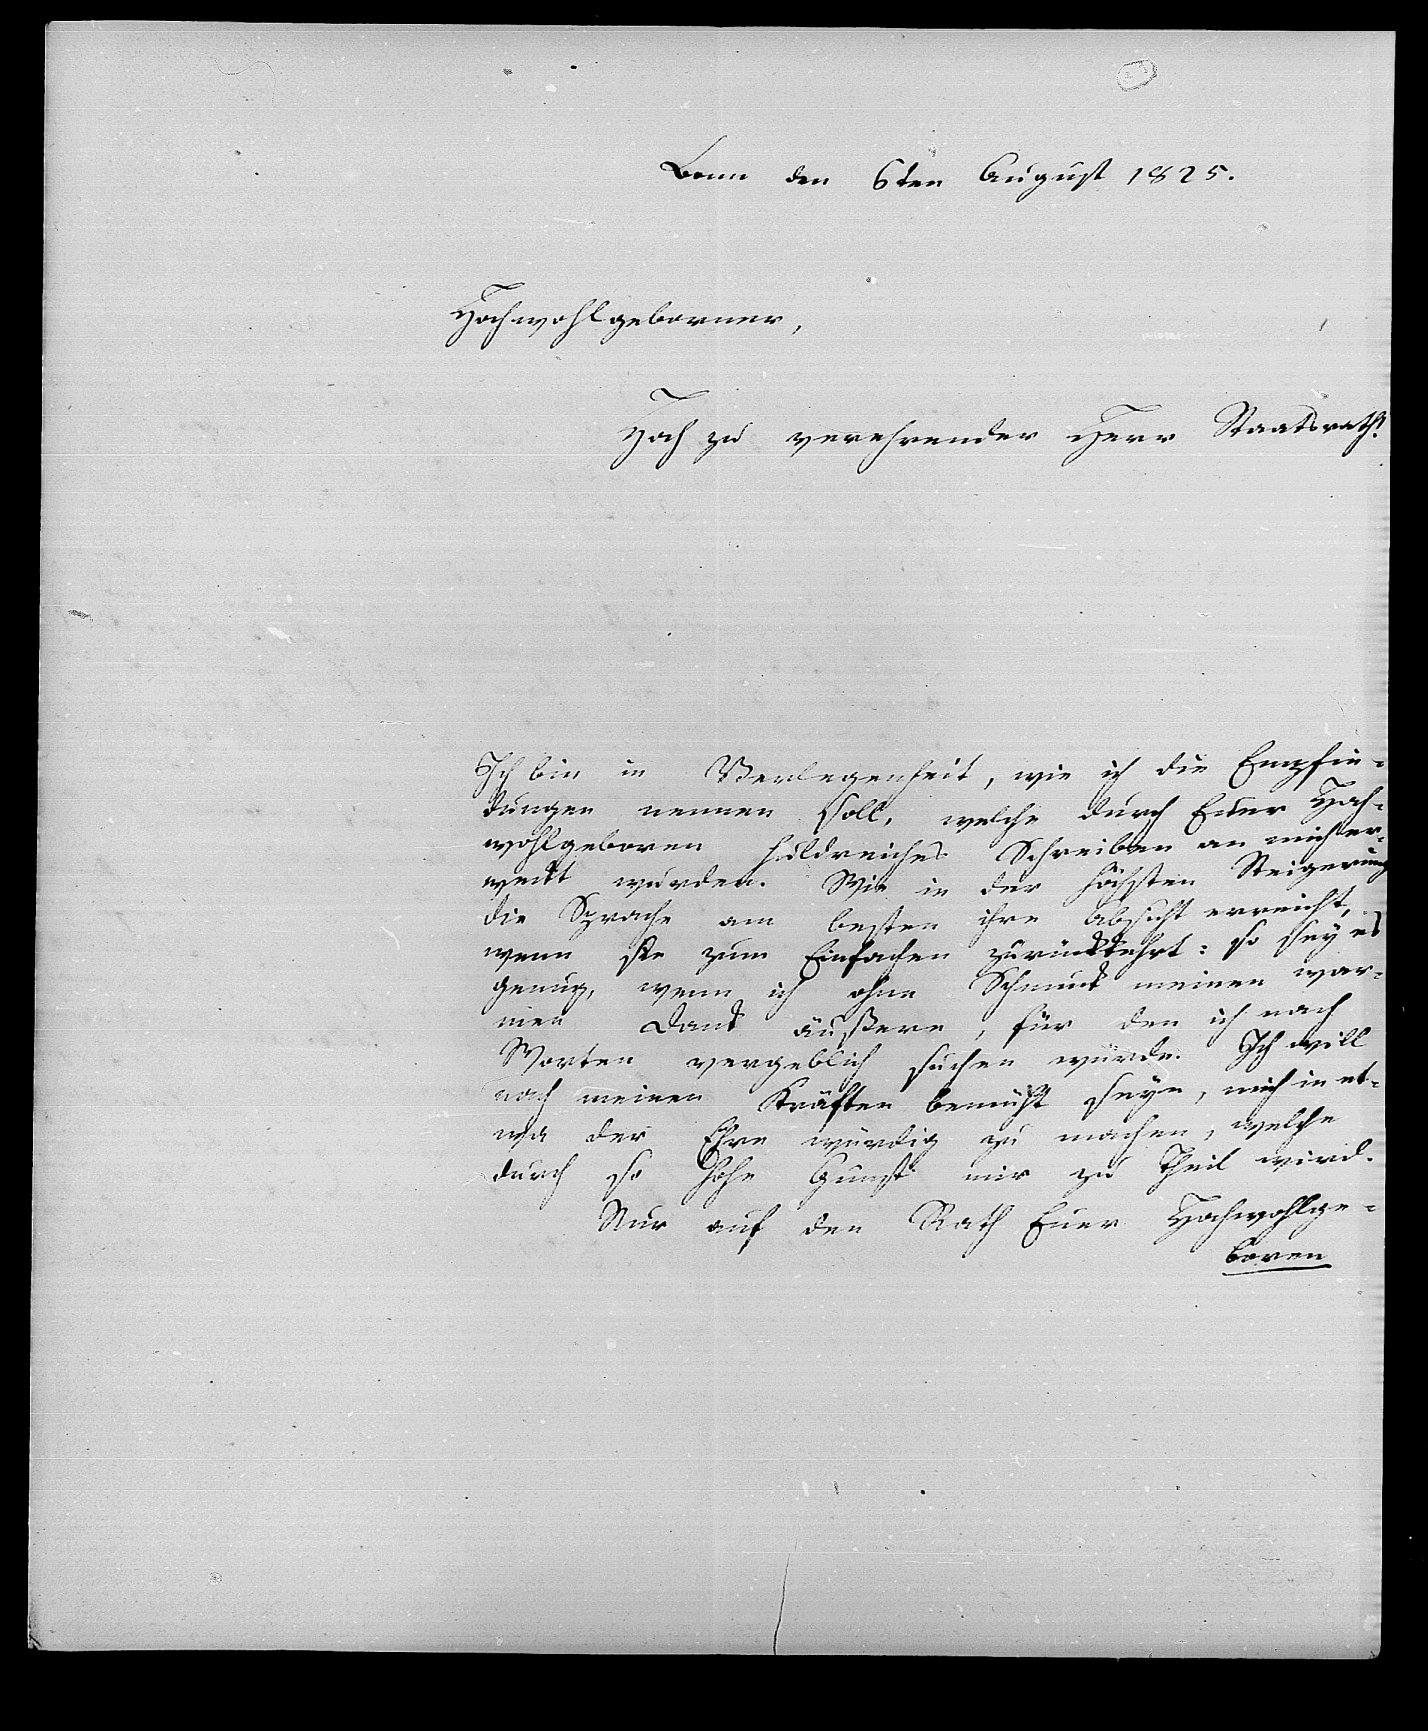 Bonn den 6ten August 1825.
Hochwohlgeborner,
Hoch zu verehrender Herr Staatsrath!
Ich bin in Verlegenheit, wie ich die Empfin-
dungen nennen soll, welche durch Euer Hoch-
wohlgeboren huldreiches Schreiben an mich er-
weckt wurden. Wie in der höchsten Steigerung
die Sprache am besten ihre Absicht erreicht,
wenn sie zum Einfachen zurückkehrt: so sey es
genug, wenn ich ohne Schmuck meinen war-
men Dank äußere, für den ich nach
Worten vergeblich suchen würde. Ich will
nach meinen Kräften bemüht seyn, mich in et-
wa der Ehre würdig zu machen, welche
durch so hohe Gunst mir zu Theil wird.
Nur auf den Rath Euer Hochwohlge-
boren